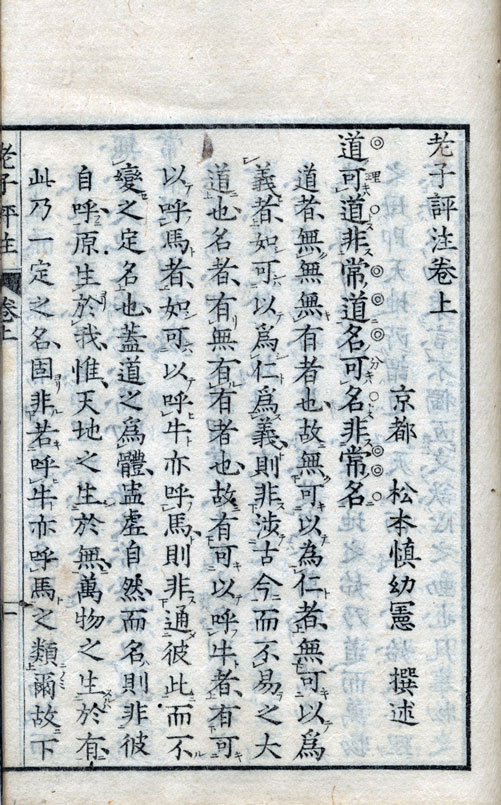 老子評注卷上
京都　松本慎幼憲　撰述
道可道非常道名可名非常名
道者無無無有者也故無可以為仁者無可以爲
義者如可以爲仁爲義則非涉古今而不易之大
道也名者有無有有者也故有可以呼牛者有可
以呼馬者如可以呼牛亦呼馬則非通彼此而不
變之定名也蓋道之爲體盅虛自然而名則非彼
自呼原生於我惟天地之生於無萬物之生於有
此乃一定之名固非若呼牛亦呼馬之類爾故下
老子評注　卷上　一